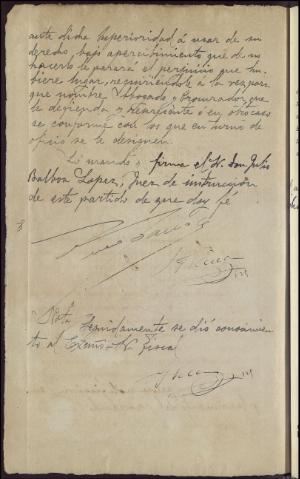 ante dicha Superioridad á usar de su
derecho, bajo apercibimiento que de no
hacerlo le parará el perjuicio que hu-
biere lugar, requiriéndole á la vez para
que nombre Abogado y Procurador que
le defienda y represente ó en otro caso
se conforme con los que en turno de
oficio se le designen.
Lo mandó y firma el Sr. Don Julio
Balboa Lopez, Juez de instrucción
de este partido de que doy fé
Nota Seguidamente se dió conocimien-
to al Excmo Sr. Fiscal